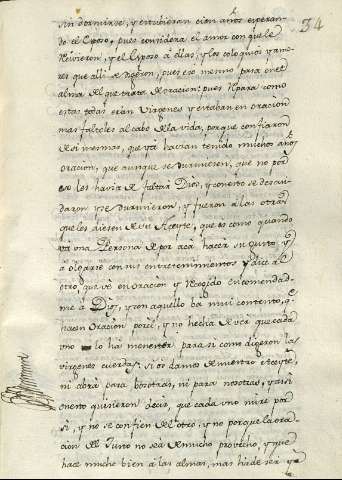 34
sin dormirse, y estubieran cien años esperan-
do el Esposo, pues considera el amor con que le
recivieron, y el Esposo a ellas, y los coloquios y ame-
res que alli se digeron, pues eso mesmo pasa en el
alma el que trata de oracion; pues repara como
estas todas eran Virgenes y estaban en oracion
mas faltoles al cabo de la vida, porque confiaron
de si mesmas, que ya havian tenido muchos años
oracion, que aunque se durmiesen, que no por
eso les havia de faltar Dios, y con esto se descui-
daron y se durmieron, y fueron a las otras
que les diesen de su Aceyte, que es como quando
va una Persona por acá hacer su gusto, y
a olgarse con sus entretenimientos y dice al
otro que vé en oracion y recogido encomendad-
me a Dios, y con aquello ba mui contento, que
hacen oracion por el, y no hecha de ver que cada
uno lo ha menester para si como digeron las
virgenes cuerdas; si os damos de nuestro Aceyte,
ni abrá para bosotras, ni para nosotras, y asi
en esto quisieron decir, que cada uno mire por
si, y no se confien del otro, y no porque la ora-
cion del Justo no sea de mucho provecho, y que
hace mucho bien a las almas, mas ha de ser